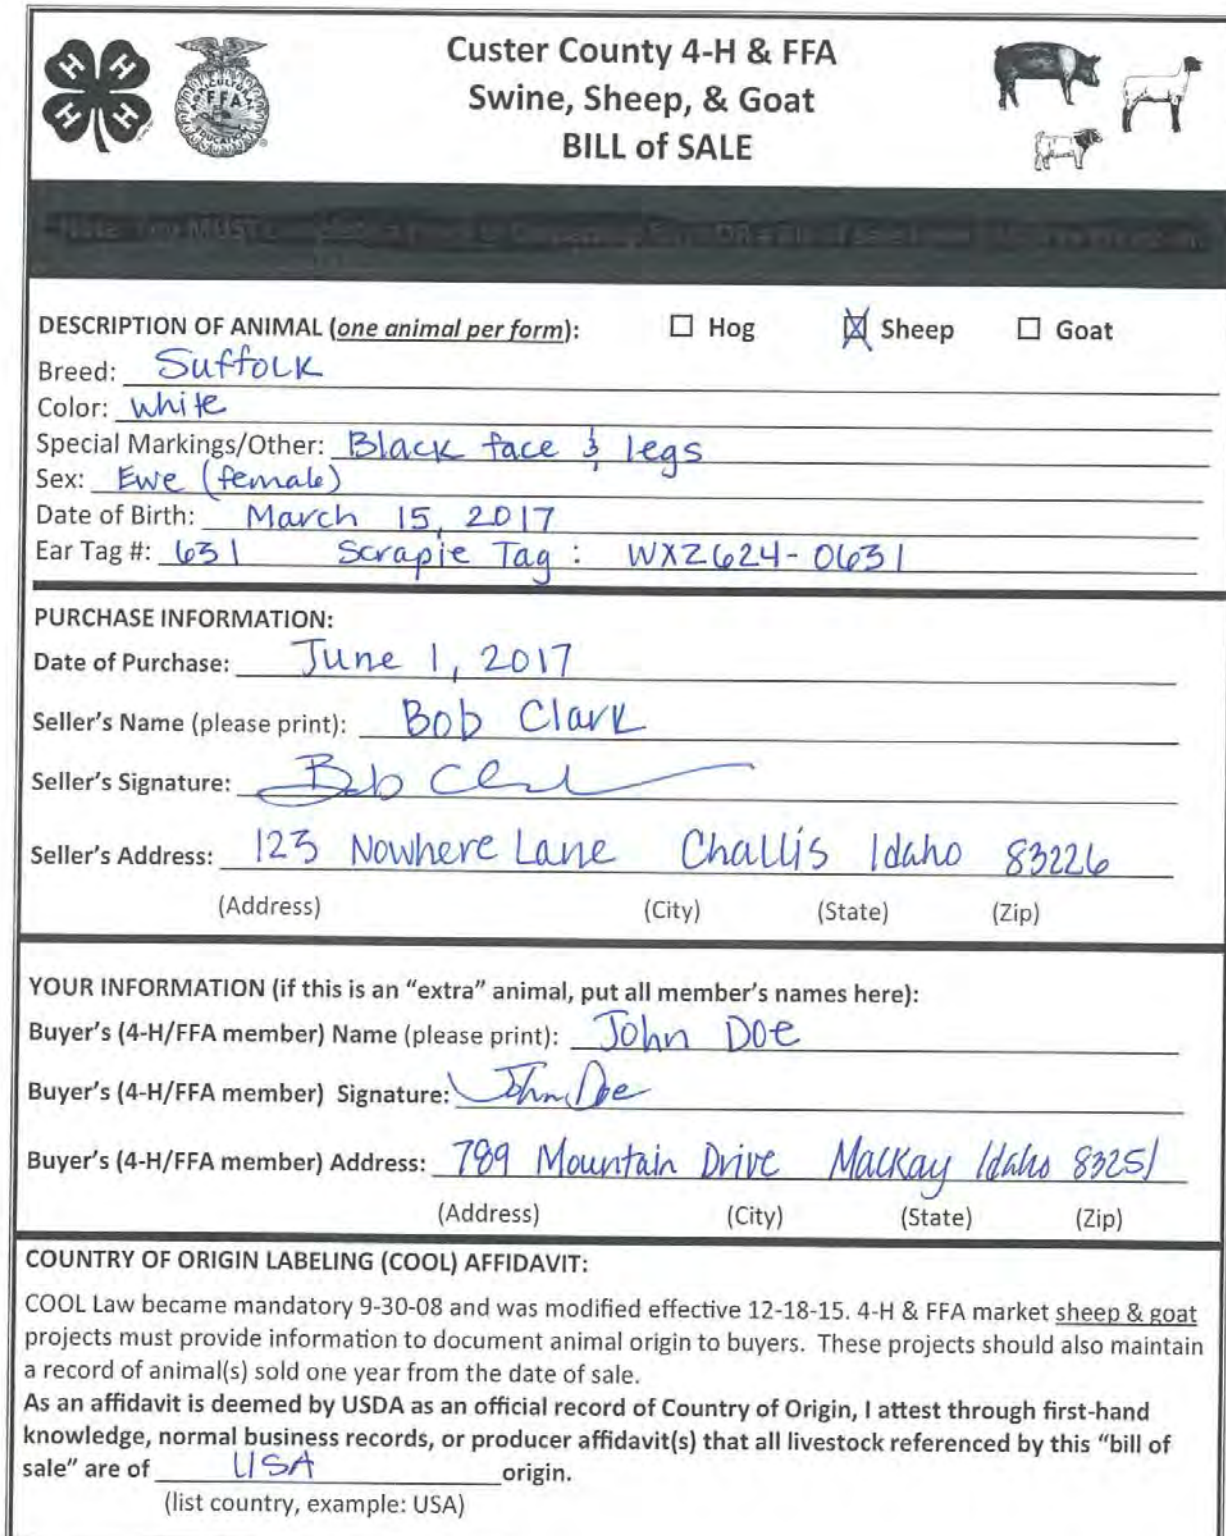 H H H H
FFA
Custer County 4-H & FFA
Swine, Sheep, & Goat
BILL of SALE
DESCRIPTION OF ANIMAL (one animal per form): ☐ Hog ☒ Sheep ☐ Goat
Breed: Suffolk
Color: white
Special Markings/Other: Black face & legs
Sex: Ewe (female)
Date of Birth: March 15, 2017
Ear Tag #: 631 Scrapie Tag : WXZ624-0631
PURCHASE INFORMATION:
Date of Purchase: June 1, 2017
Seller's Name (please print): Bob Clark
Seller's Signature: Bob Cl
Seller's Address: 123 Nowhere Lane Challis Idaho 83226
(Address) (City) (State) (Zip)
YOUR INFORMATION (if this is an "extra" animal, put all member's names here):
Buyer's (4-H/FFA member) Name (please print): John Doe
Buyer's (4-H/FFA member) Signature: John Doe
Buyer's (4-H/FFA member) Address: 789 Mountain Drive Mackay Idaho 83251
(Address) (City) (State) (Zip)
COUNTRY OF ORIGIN LABELING (COOL) AFFIDAVIT:
COOL Law became mandatory 9-30-08 and was modified effective 12-18-15. 4-H & FFA market sheep & goat
projects must provide information to document animal origin to buyers. These projects should also maintain
a record of animal(s) sold one year from the date of sale.
As an affidavit is deemed by USDA as an official record of Country of Origin, I attest through first-hand
knowledge, normal business records, or producer affidavit(s) that all livestock referenced by this "bill of
sale" are of USA origin.
(list country, example: USA)